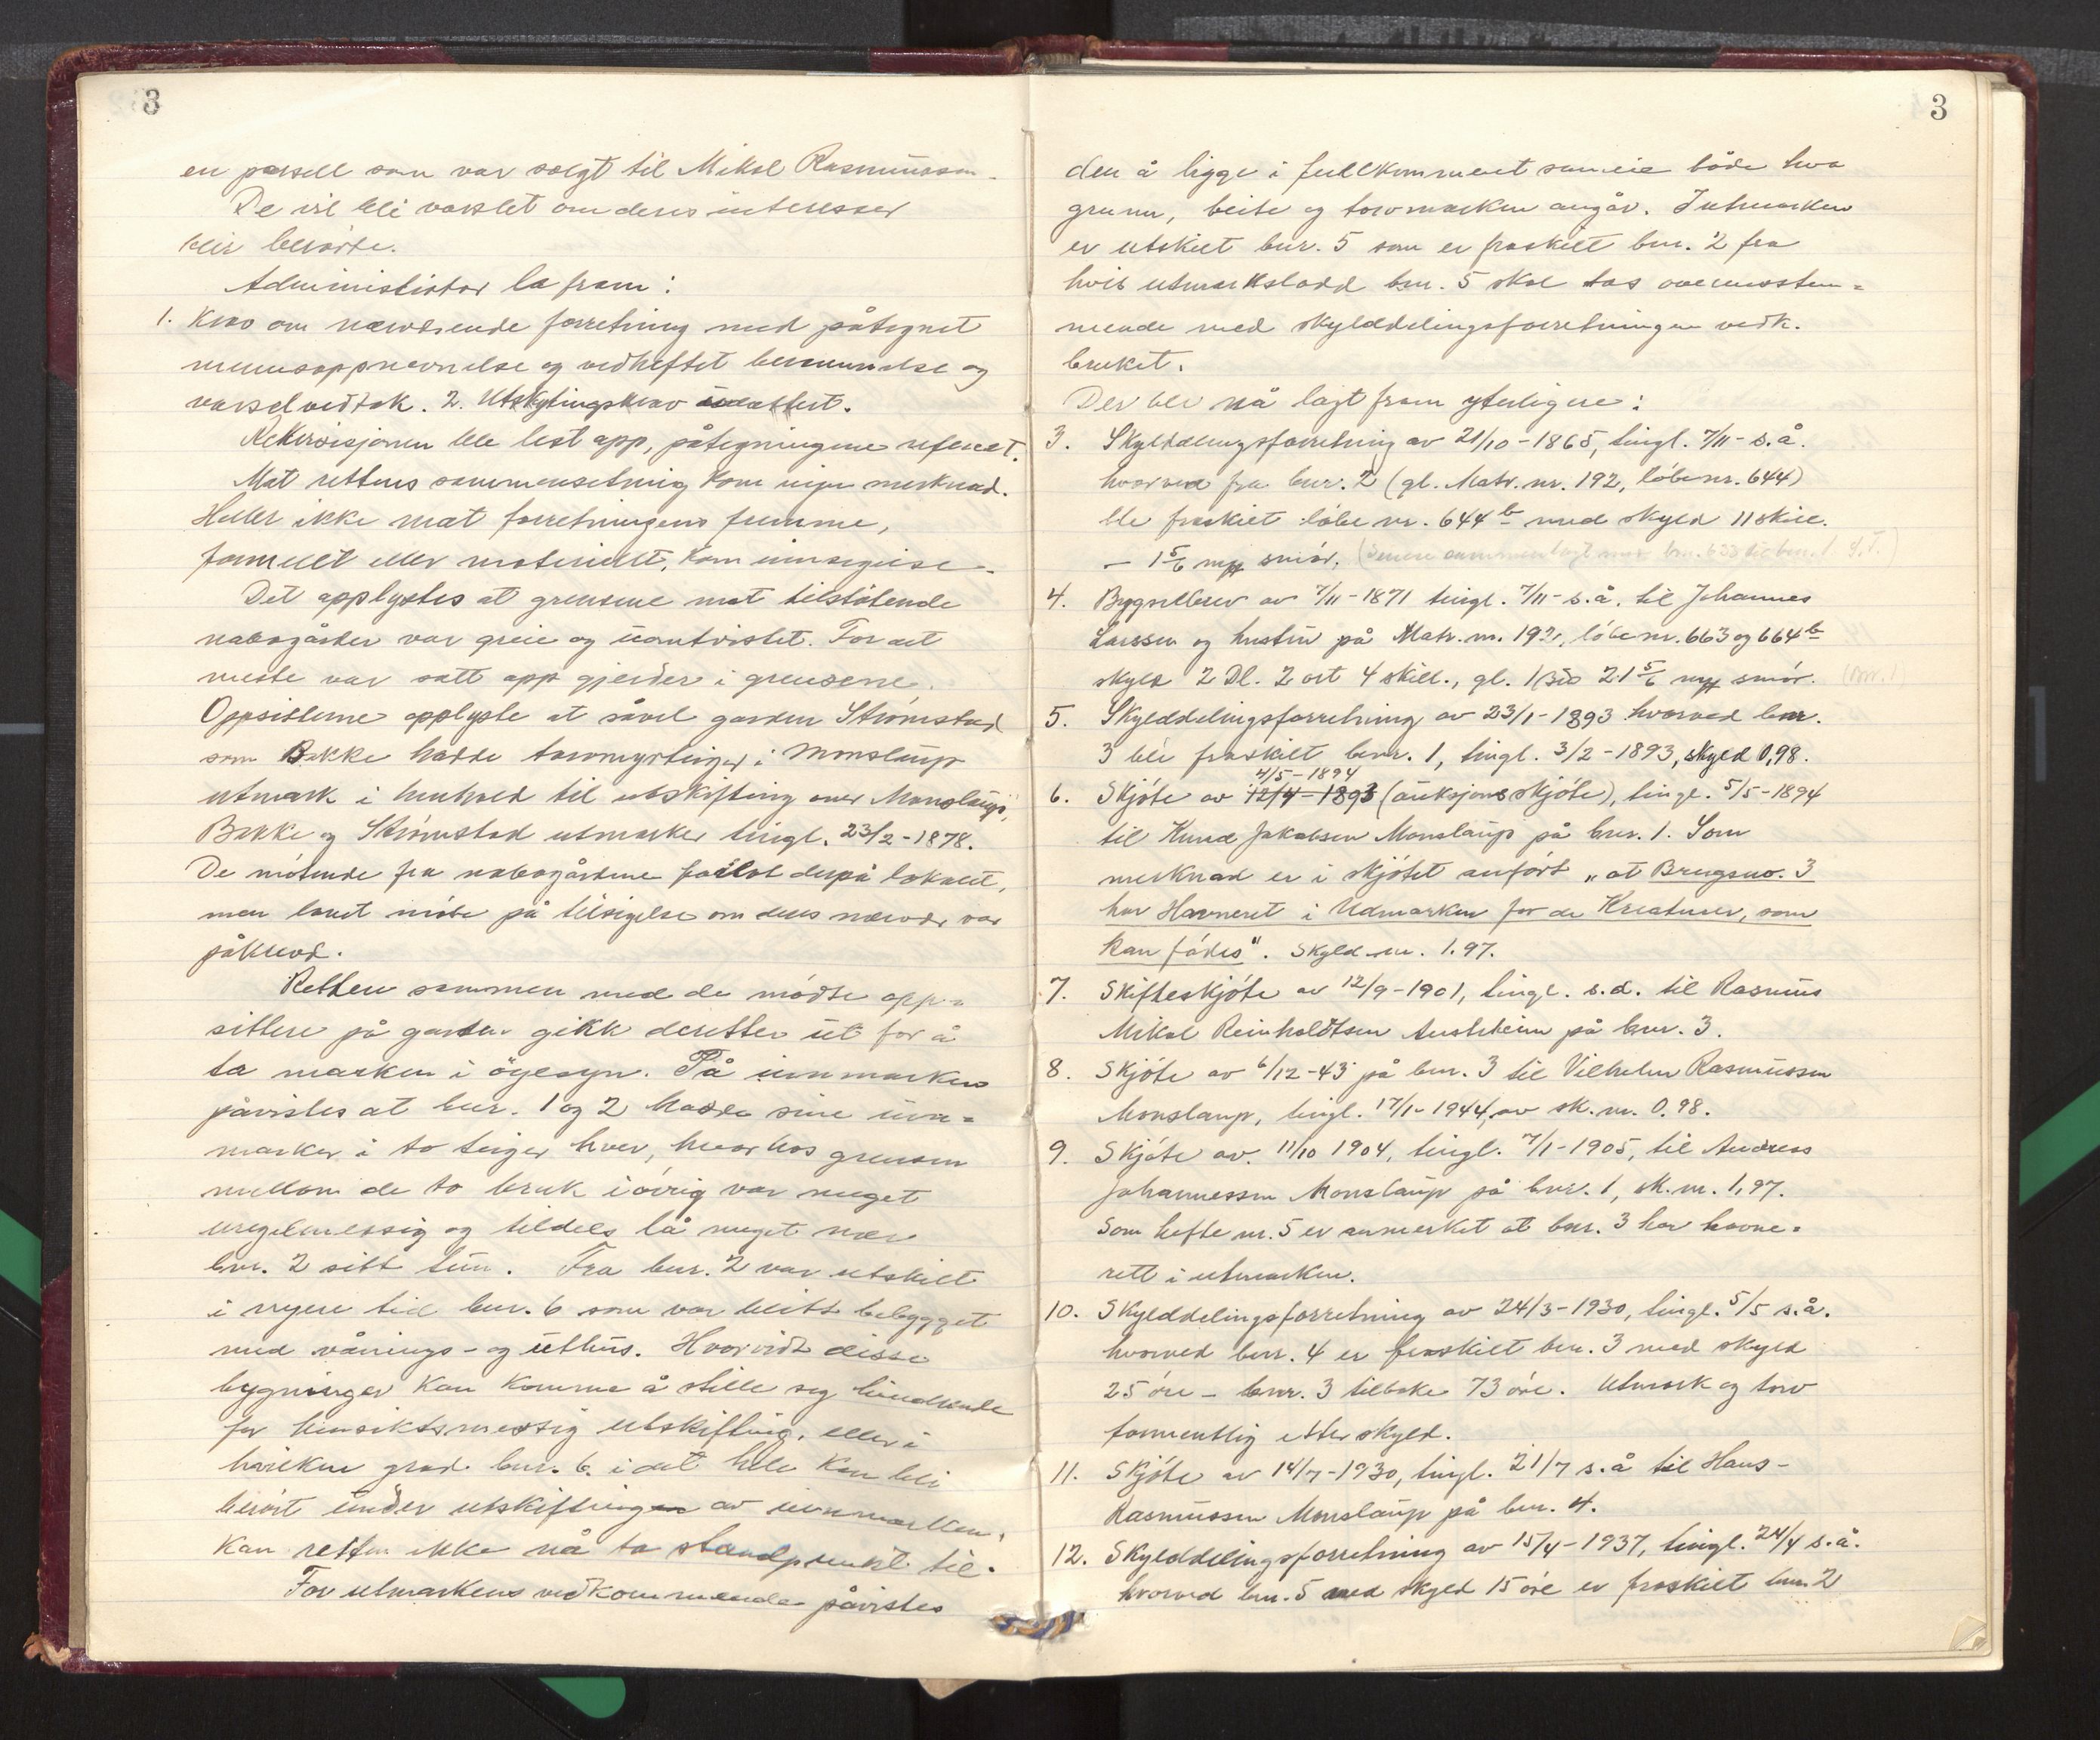 3
en parsell som var solgt til Mikal Rasmussen.
De vil bli varslet om deres interesser
blir berørte.
Administrator la fram:
1. Krav om nærværende forretning med påtegnet
mennsoppnevnelse og vedheftet berammelse og
varselvedtak. 2. Utskiftingskrav
Rekvisisjonen ble lest opp, påtegningene referert.
Mot rettens sammensetning kom ingen merknad.
Heller ikke mot forretningens fremme,
formelt eller materielt, kom innsigelse.
Det opplystes at grensene mot tilstøtende
nabogårder var greie og uomtvistet. For det
meste var satt opp gjerder i grensene.
Oppsitterne opplyste at såvel garden Strømstad
som Bakke hadde torvmyrteiger i Monslaup
utmark i henhold til utskifting over Monslaups,
Bakke og Strømstad utmarker tingl. 23/2-1878.
De møtende fra nabogårdene forlot derpå lokalet,
men lovet møte på tilsigelse om deres nærvær var
påkrevd.
Retten sammen med de møtte opp-
sittere på garden gikk deretter ut for å
ta marken i øyesyn. På innmarken
påvistes at bnr. 1 og 2 hadde sine inn-
marker i to teiger hver, hvorhos grensen
mellom de to bruk iøvrig var meget
uregelmessig og tildels lå meget nær
bnr. 2 sitt tun. Fra bnr. 2 var utskilt
i nyere tid bnr. 6 som var blitt bebygget
med vånings- og uthus. Hvorvidt disse
bygninger kan komme å stille seg hindrende
for hensiktsmessig utskifting, eller i
hvilken grad bnr. 6 i det hele kan bli
berørt under utskiftingen av innmarken,
kan retten ikke nå ta standpunkt til.
For utmarkens vedkommende påvistes
3
den å ligge i fullkomment sameie både hva
grunn, beite og torvmarken angår. I utmarken
er utskilt bnr. 5 som er fraskilt bnr. 2 fra
hvis utmarkslodd bnr. 5 skal tas overensstem-
mende med skylddelingsforretningen vedk.
bruket.
Der ble nå lagt fram ytterligere:
3. Skylddelingsforretning av 21/10-1865, tingl. 7/11- s.å.
hvorved fra bnr. 2 (gl. Matr. nr. 192, løbenr. 644)
ble fraskilt løbe nr. 644 b med skyld 11 skill.
- 1 5/6 mp smør.
4. Bygselbrev av 7/11-1871 tingl. 7/11- s.å. til Johannes
Larssen og hustru på Matr. nr. 192, løbenr. 663 og 664 b
skyld 2 Dl. 2 ort 4 skill., gl. 21 5/6 mp smør. (bnr. 1)
5. Skylddelingsforretning av 23/1-1893 hvorved bnr.
3 ble fraskilt bnr. 1, tingl. 3/2-1893, skyld 0,98.
4/5-1894
6. Skjøte av 12/4-1893 (auksjonsskjøte), tingl. 5/5-1894
til Knud Jakobsen Monslaup på bnr. 1. Som
merknad er i skjøtet anført „at Brugsno. 3
har Havneret i Udmarken for de Kreaturer, som
kan fødes". Skyld m. 1.97.
7. Skifteskjøte av 12/9-1901, tingl. s.d. til Rasmus
Mikal Reinholdtsen Austrheim på bnr. 3.
8. Skjøte av 6/12-43 på bnr. 3 til Vilhelm Rasmussen
Monslaup, tingl. 17/1-1944, av sk. m. 0.98.
9. Skjøte av. 11/10 1904, tingl. 7/1-1905, til Andreas
Johannessen Monslaup på bnr. 1, sk. m. 1,97.
Som hefte nr. 5 er anmerket at bnr. 3 har havne-
rett i utmarken.
10. Skylddelingsforretning av 24/3-1930, tingl. 5/5 s.å.
hvorved bnr. 4 er fraskilt bnr. 3 med skyld
25 øre - bnr. 3 tilbake 73 øre. Utmark og torv
formentlig etter skyld.
11. Skjøte av 14/7-1930, tingl. 21/7 s.å til Hans-
Rasmussen Monslaup på bnr. 4.
12. Skylddelingsforretning av 15/4-1937, tingl. 24/4 s.å.
hvorved bnr. 5 med skyld 15 øre er fraskilt bnr. 2